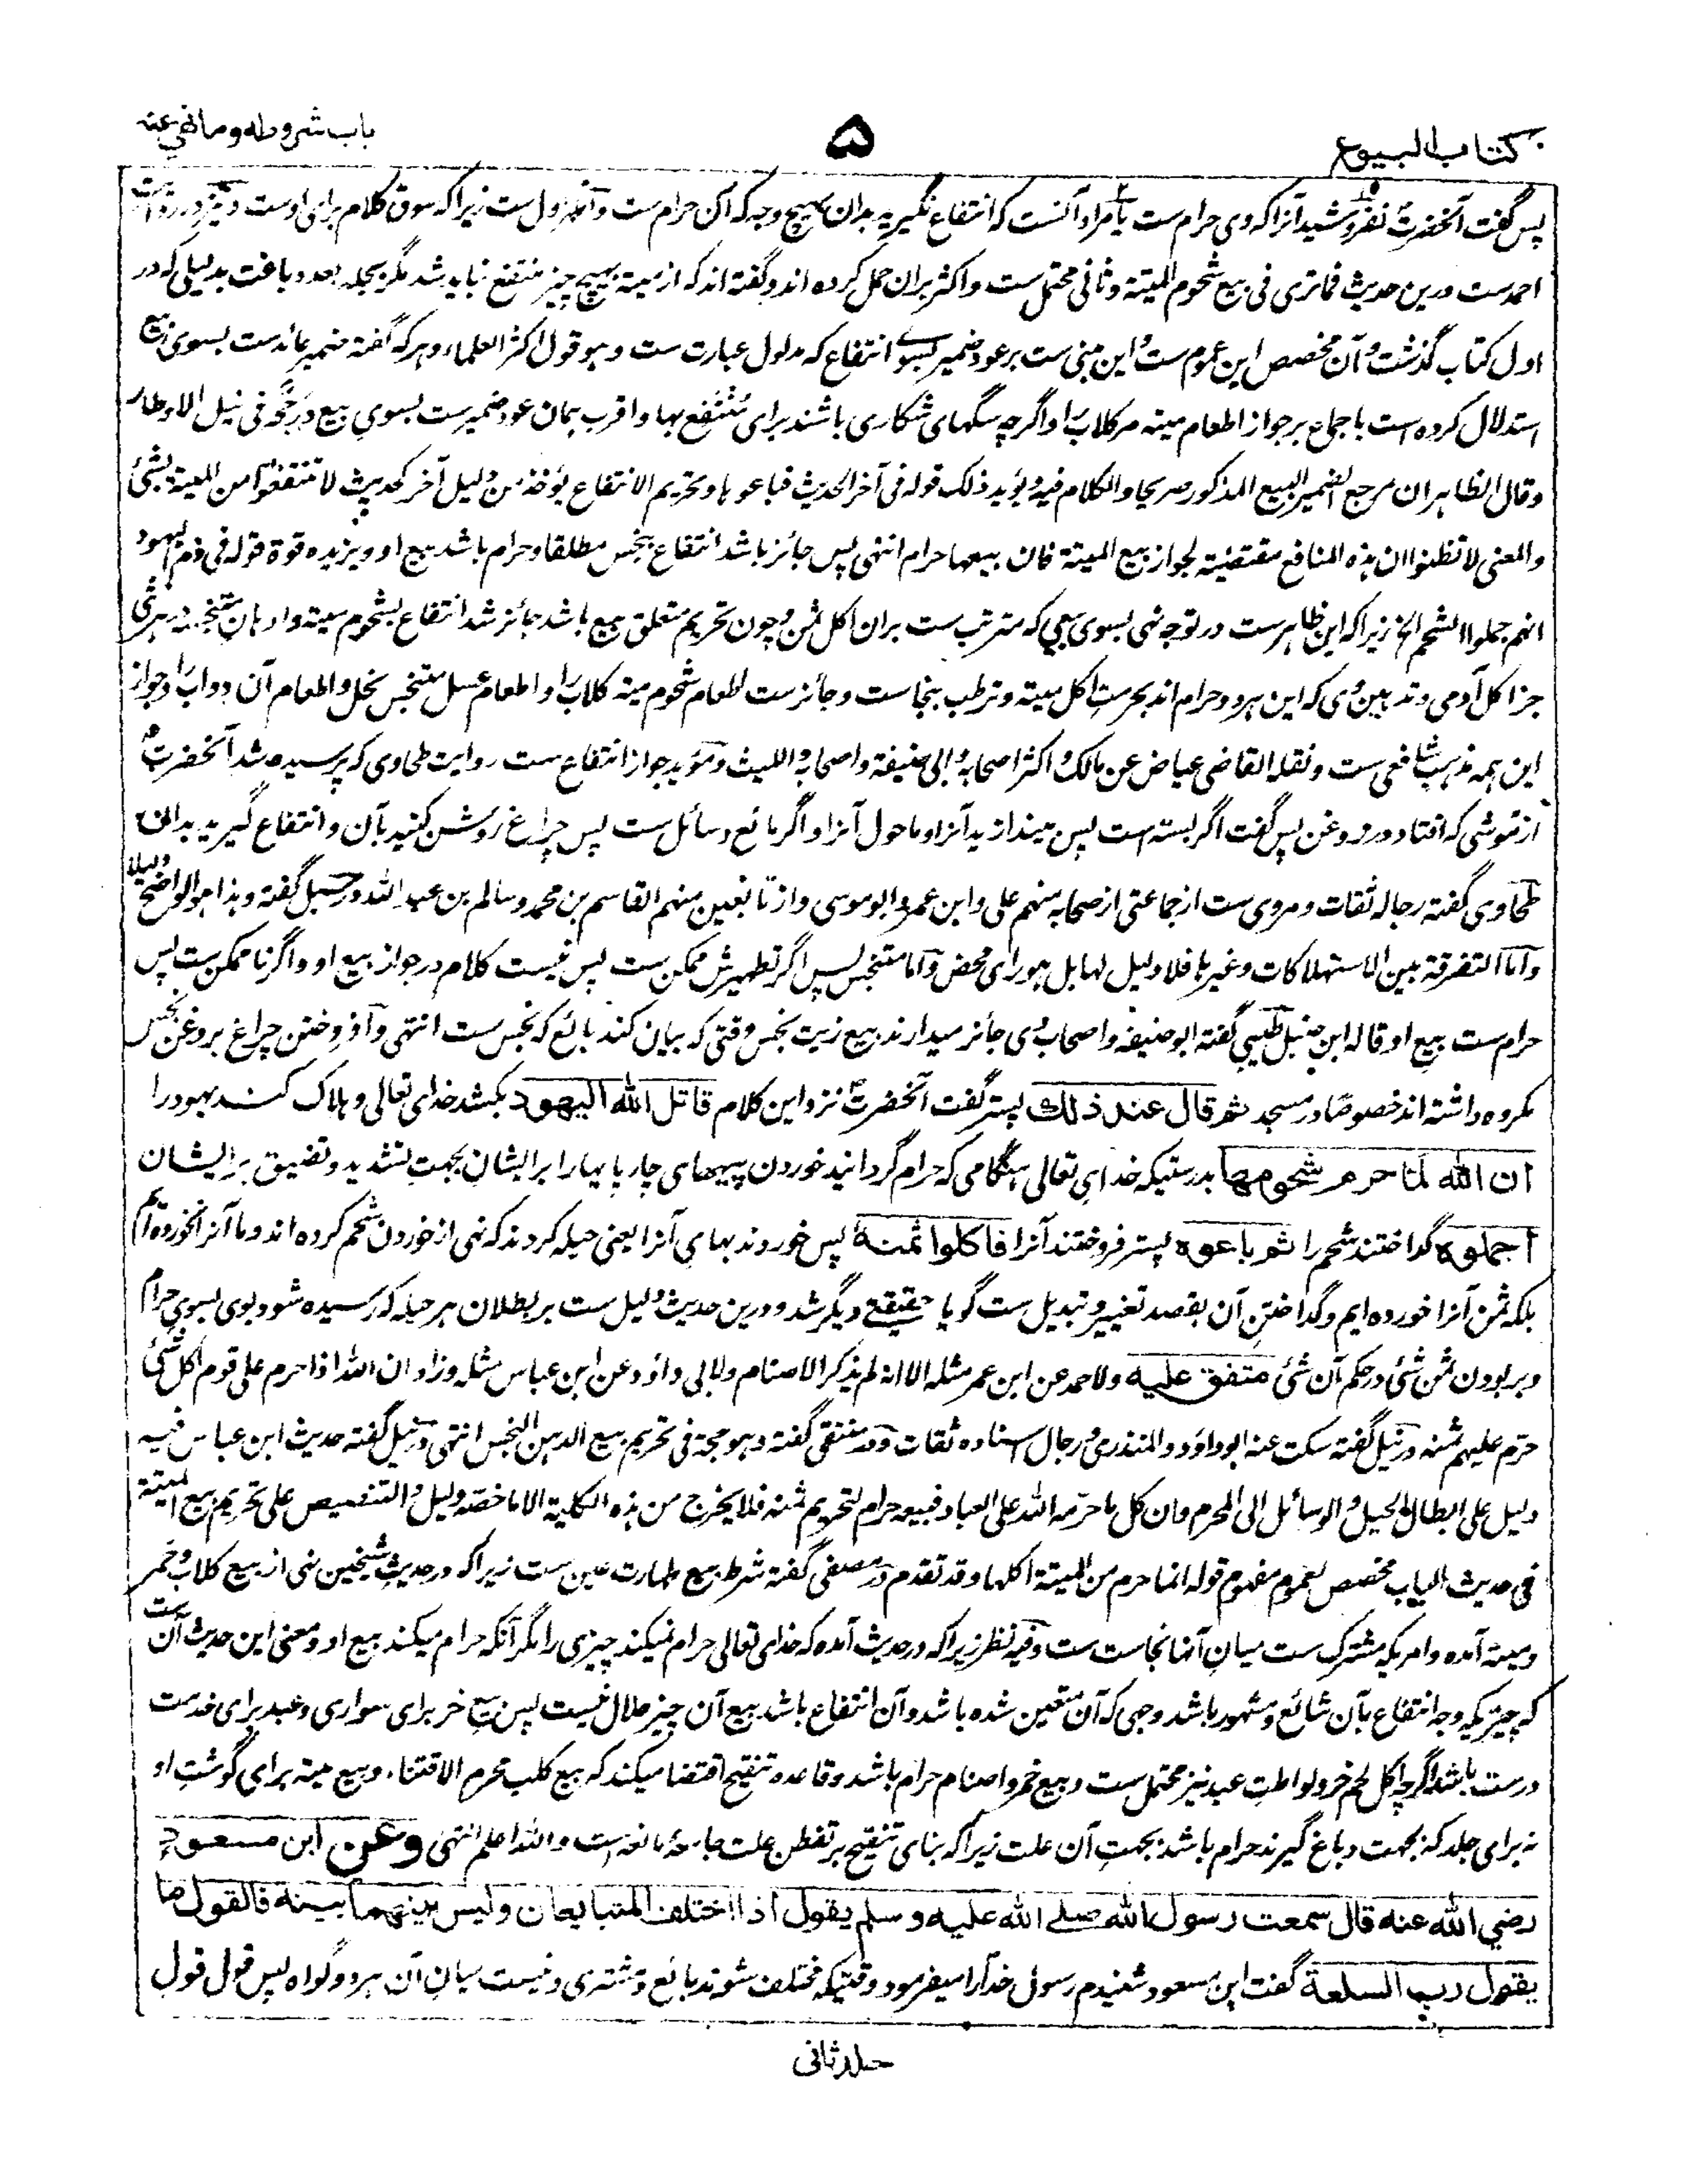 کتاب البیوع
۵
باب شروطه وما نهی عنه
پس گفت آنحضرت نفروشید آنرا که وی حرام ست یا مراد آنست که انتفاع نگیرید بدان بهیچ وجه که آن حرام ست و اول ست زیراکه سوق کلام برای اوست و نیز در روایت
احمدست درین حدیث فما تری فی بیع شحوم المیتة و ثانی محتمل ست و اکثر بران حمل کرده اند و گفته اند که از میته بهیچ چیز منتفع نباید شد مگر بجلد بعد دباغت بدلیلی که در
اول کتاب گذشت و آن مخصص این عموم ست و این مبنی ست بر عود ضمیر بسوے انتفاع که مدلول عبارت ست و هو قول اکثر العلماء و هر که گفته ضمیر عائدست بسوی بیع
استدلال کرده است باجماع بر جواز اطعام میته مر کلاب را و اگرچه سگهای شکاری باشند برای منتفع بها و اقرب همان عود ضمیرست بسوی بیع و رجحه فی نیل الاوطار
وقال الظاهر ان مرجع الضمیر البیع المذکور صریحا والکلام فیه و یؤید ذلک قوله فی آخر الحدیث فباعوها و تحریم الانتفاع یؤخذ من دلیل آخر کحدیث لا تنتفعوا من المیتة بشئ
والمعنی لا تظنوا ان هذه المنافع مقتضیة لجواز بیع المیتة فان بیعها حرام انتهی پس جائز باشد انتفاع بنجس مطلقا و حرام باشد بیع او و یزیده قوة قوله فی ذم الیهود
انهم جملوا الشحم الخ زیراکه این ظاهرست در توجه نهی بسوی بیعی که مترتب ست بران اکل ثمن و چون تحریم متعلق ببیع باشد جائز شد انتفاع بشحوم میته و ادهان متنجسه در هر شی
جز اکل آدمی و تدهین وی که این هردو حرام اند بحرمت اکل میته و ترطب بنجاست و جائزست اطعام شحوم میته کلاب را و اطعام عسل متنجس نحل و اطعام آن دواب را و جواز
این همه مذهب شافعی ست و نقله القاضی عیاض عن مالک و اکثر اصحابه و ابی حنیفة و اصحابه و اللیث و مؤید جواز انتفاع ست روایت طحاوی که پرسیده شد آنحضرت
از موشی که افتاد در روغن پس گفت اگر بسته است پس بیندازید آنرا و ماحول آنرا و اگر مائع و سائل ست پس چراغ روشن کنید بآن و انتفاع گیرید بدان
طحاوی گفته رجاله ثقات و مروی ست از جماعتی از صحابه منهم علی و ابن عمر و ابو موسی و از تابعین منهم القاسم بن محمد و سالم بن عبد الله و در سبل گفته و هذا هو الواضح دلیلا
و اما التفرقة بین الاستهلاکات و غیرها فلا دلیل لها بل هو رأی محض و اما متنجس پس اگر تطهیرش ممکن ست پس نیست کلام در جواز بیع او و اگر ناممکن ست پس
حرام ست بیع او قاله ابن حنبل طیبی گفته ابو حنیفه و اصحاب وی جائز میدارند بیع زیت نجس وقتی که بیان کند بائع که نجس ست انتهی و افروختن چراغ بروغن نجس
مکروه داشته اند خصوصا در مسجد ثم قال عند ذلك پستر گفت آنحضرت نزد این کلام قاتل الله الیهود بکشد خدای تعالی و هلاک کند یهود را
ان الله لما حرم شحومها بدرستیکه خدای تعالی هنگامی که حرام گردانید خوردن پیههای چارپایها را بر ایشان بجهت تشدید و تضییق بر ایشان
اجملوه گداختند شحم را ثم باعوه پستر فروختند آنرا فاکلوا ثمنه پس خوردند بهای آنرا یعنی حیله کردند که نهی از خوردن شحم کرده اند و ما آنرا نخورده ایم
بلکه ثمن آنرا خورده ایم و گداختن آن بقصد تغییر و تبدیل ست گویا حقیقتے دیگر شد و درین حدیث دلیل ست بر بطلان هر حیله که رسیده شود بوی بسوی حرام
و بر بودن ثمن شئ در حکم آن شئ متفق علیه و لاحمد عن ابن عمر مثله الا انه لم یذکر الاصنام و لابی داؤد عن ابن عباس مثله و زاد ان الله اذا حرم علی قوم اکل شئ
حرم علیهم ثمنه در نیل گفته سکت عنه ابو داؤد و المنذری و رجال اسناده ثقات و در منتقی گفته و هو حجة فی تحریم بیع الدهن النجس انتهی و در نیل گفته حدیث ابن عباس فیه
دلیل علی ابطال الحیل و الوسائل الی المحرم و ان کل ما حرمه الله علی العباد فبیعه حرام لتحریم ثمنه فلا یخرج من هذه الکلیة الا ما خصه دلیل و التنصیص علی تحریم بیع المیتة
فی حدیث الباب مخصص لعموم مفهوم قوله انما حرم من المیتة اکلها و قد تقدم در مصفی گفته شرط بیع طهارت عین ست زیراکه در حدیث شیخین نهی از بیع کلاب و خمر
و میته آمده و امریکه مشترک ست میان آنها نجاست ست و فیه نظر زیراکه در حدیث آمده که خدای تعالی حرام نمیکند چیزی را مگر آنکه حرام میکند بیع او و معنی این حدیث آن ست
که چیزیکه وجه انتفاع بآن شائع و مشهور باشد وجهی که آن متعین شده باشد و آن انتفاع باشد بیع آن چیز حلال نیست پس بیع خر برای سواری و عبد برای خدمت
درست باشد اگرچه اکل لحم خر و لواطت عبد نیز محتمل ست و بیع خمر و اصنام حرام باشد و قاعده تنقیح اقتضا میکند که بیع کلب محرم الاقتناء و بیع میته برای گوشت او
نه برای جلد که بجهت دباغ گیرند حرام باشد بجهت آن علت زیراکه بنای تنقیح بر تفطن علت جامعهٔ مانعه است والله اعلم انتهی وعن ابن مسعود
رضي الله عنه قال سمعت رسول الله صلے الله علیه وسلم یقول اذا اختلف المتبایعان ولیس بینهما بینة فالقول ما
یقول رب السلعة گفت ابن مسعود شنیدم رسول خدا را میفرمود وقتیکه مختلف شوند بائع و مشتری و نیست میان آن هردو گواه پس قول قول
جلد ثانی